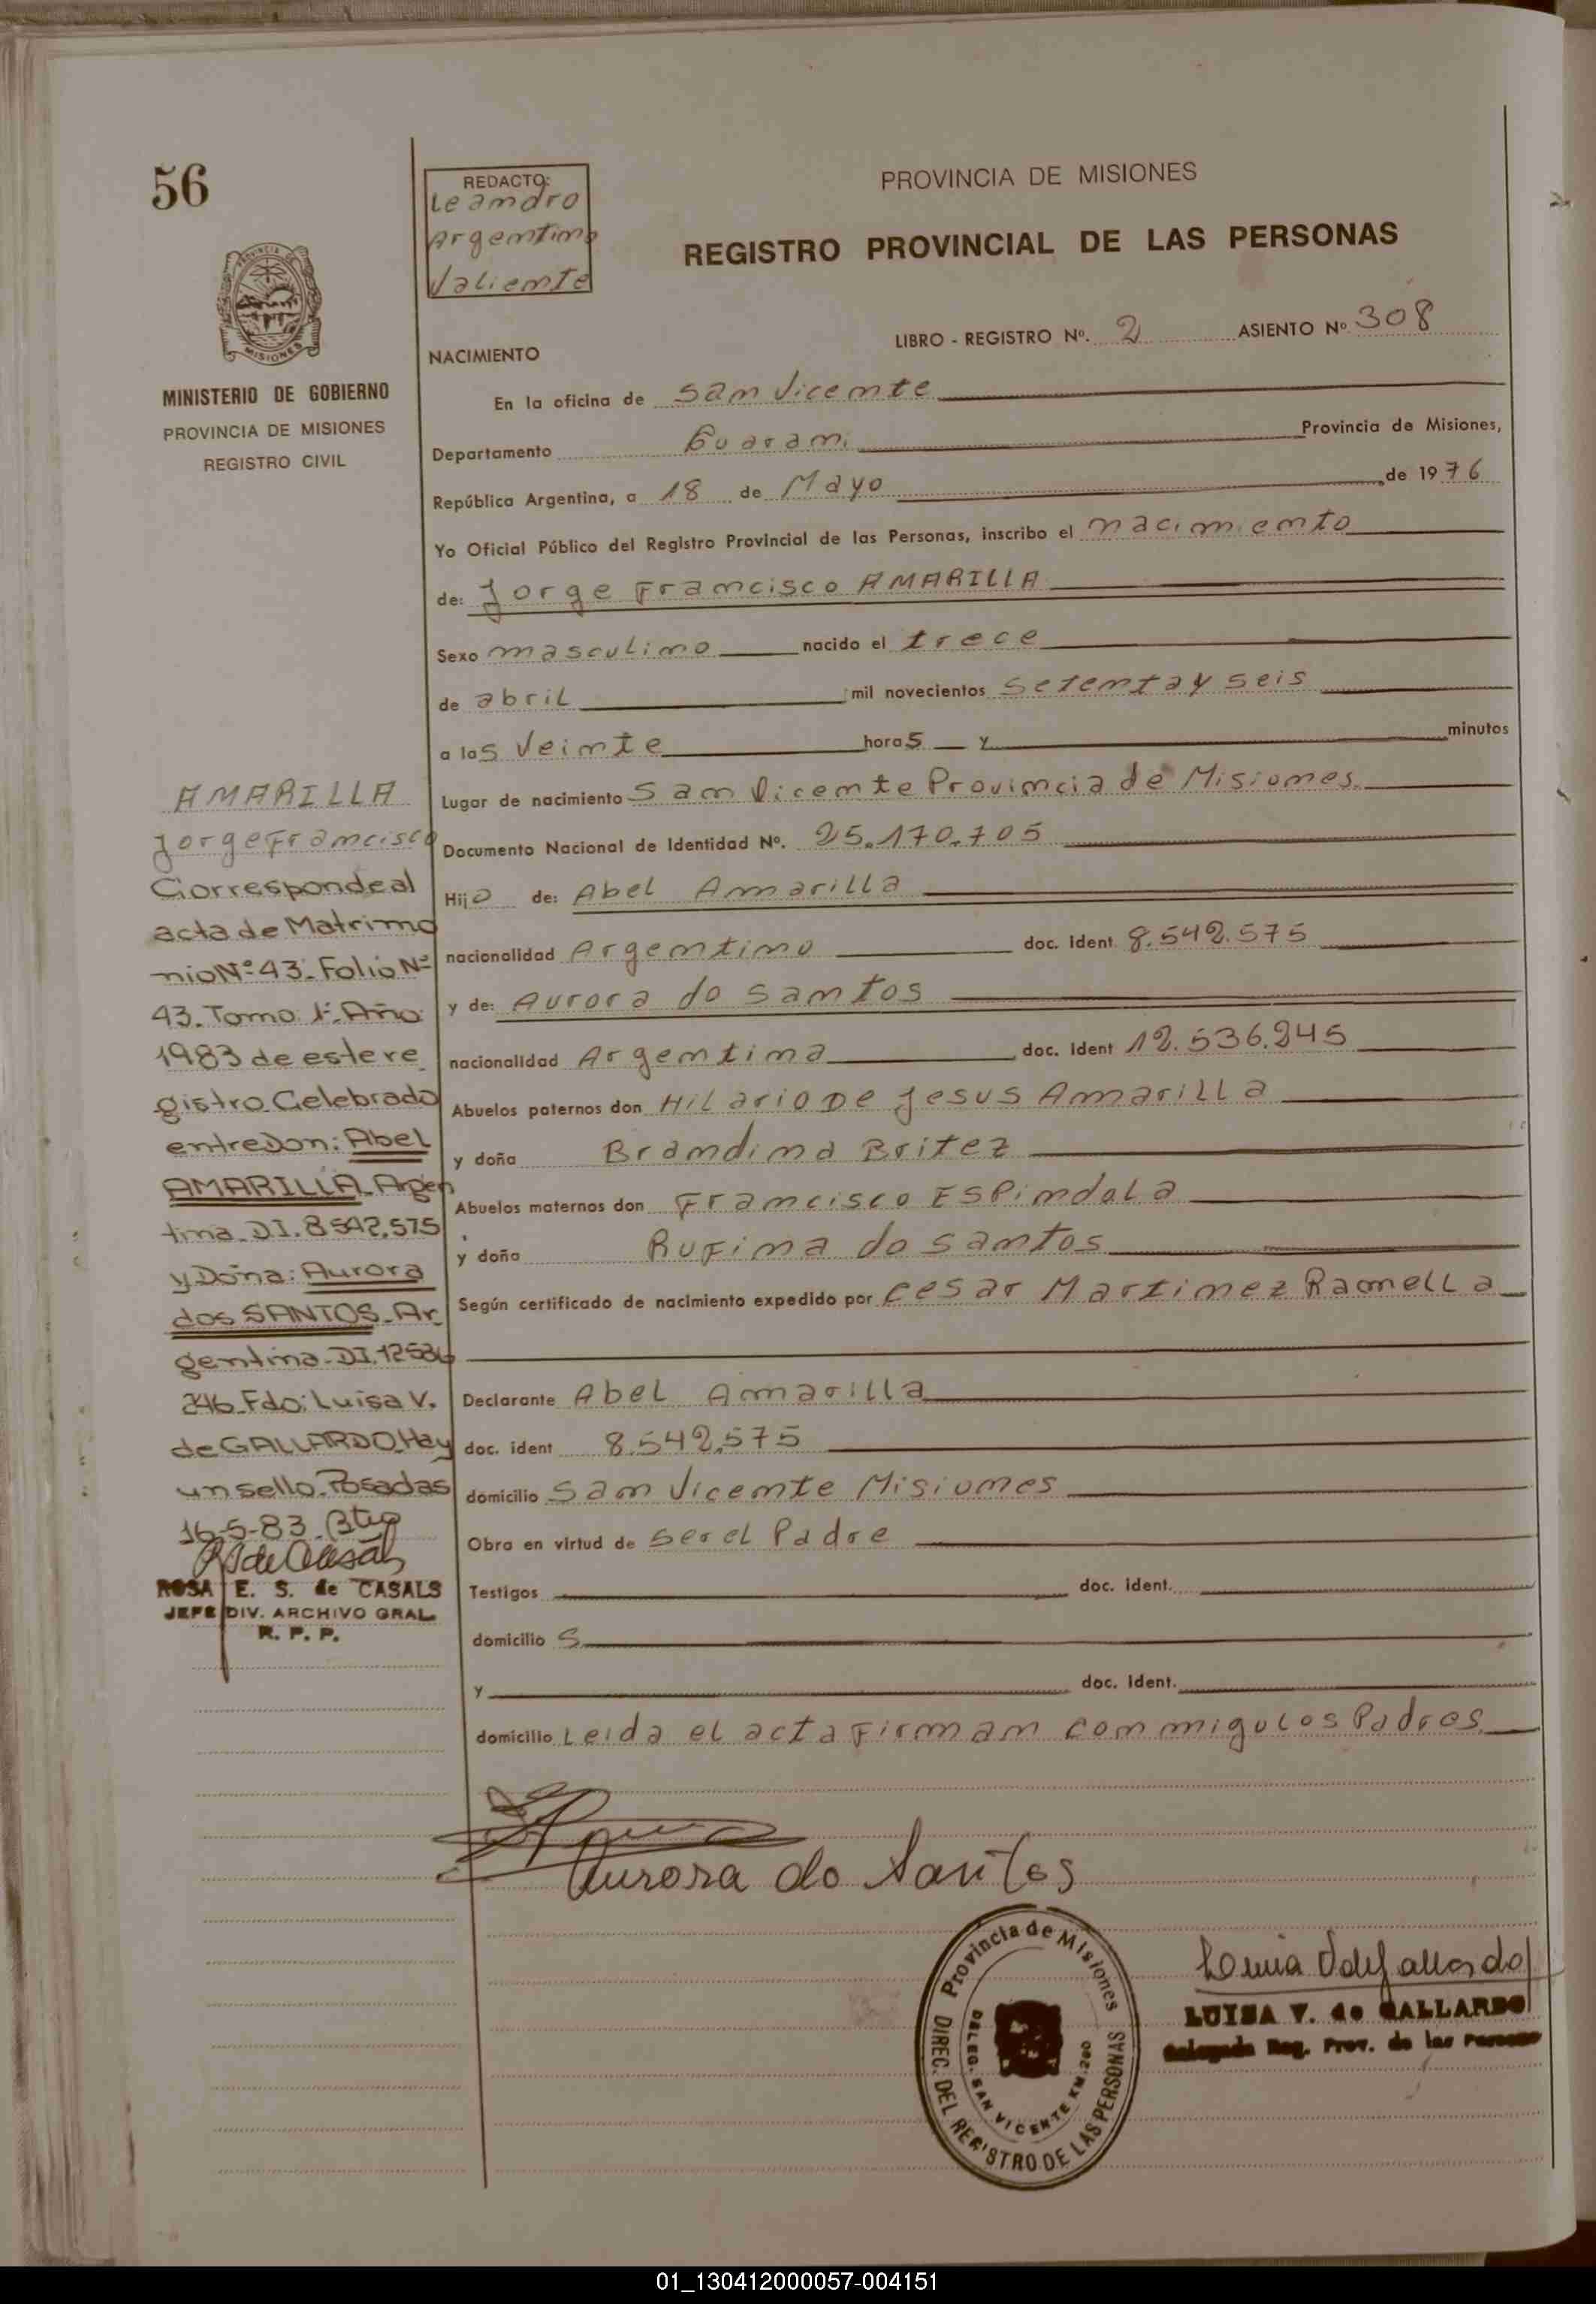 56
REDACTO:
Leandro
Argentino
Valiente
PROVINCIA DE MISIONES
REGISTRO PROVINCIAL DE LAS PERSONAS
LIBRO - REGISTRO Nº. 2 ASIENTO Nº 308
PROVINCIA DE
MISIONES
MINISTERIO DE GOBIERNO
PROVINCIA DE MISIONES
REGISTRO CIVIL
NACIMIENTO
En la oficina de San Vicente
Departamento Guarani Provincia de Misiones,
República Argentina, a 18 de Mayo de 1976
Yo Oficial Público del Registro Provincial de las Personas, inscribo el nacimiento
de: Jorge Francisco AMARILLA
Sexo masculino nacido el trece
de abril mil novecientos setenta y seis
a las veinte horas y minutos
Lugar de nacimiento San Vicente Provincia de Misiones.
Documento Nacional de Identidad Nº. 25.170.705
Hijo de: Abel Amarilla
nacionalidad Argentino doc. ident. 8.542.575
y de: Aurora do Santos
nacionalidad Argentina doc. ident 12.536.245
Abuelos paternos don Hilario De Jesus Amarilla
y doña Brandina Britez
Abuelos maternos don Francisco Espindola
y doña Rufina do Santos
Según certificado de nacimiento expedido por Cesar Martinez Ramella
Declarante Abel Amarilla
doc. ident 8.542.575
domicilio San Vicente Misiones
Obra en virtud de ser el Padre
Testigos doc. ident.
domicilio s
y doc. ident.
domicilio Leida el acta firman conmigo los Padres.
AMARILLA
Jorge Francisco
Corresponde al
acta de Matrimo
nio Nº 43. Folio Nº
43. Tomo 1º. Año
1983 de este re
gistro Celebrado
entre Don: Abel
AMARILLA. Argen
tina. D.I. 8542.575
y Doña: Aurora
dos SANTOS. Ar
gentina. D.I. 12536
246. Fdo: Luisa V.
de GALLARDO. Hay
un sello. Posadas
16-5-83.
ROSA E. S. de CASALS
JEFE DIV. ARCHIVO GRAL.
R. P. P.
Aurora do Santos
Provincia de Misiones
DIREC. DEL REGISTRO DE LAS PERSONAS
DELEG. SAN VICENTE KM. 260
Luisa V de Gallardo
LUISA V. de GALLARDO
Delegada Reg. Prov. de las Personas
01_130412000057-004151